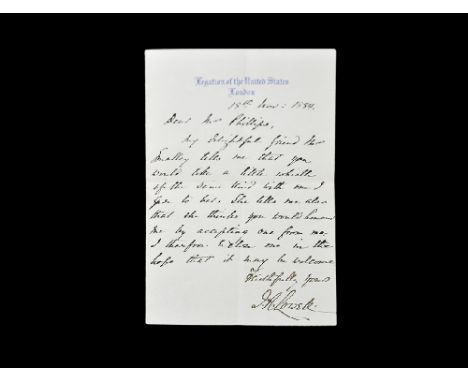 Legation of the United States
London
18th Nov: 1884.
Dear Mrs Phillips,
My delightful friend Mrs
Smalley tells me that you
would like a little whistle
of the same kind with one I
gave to her. She tells me also
that she thinks you would honour
me by accepting one from me.
I therefore enclose one in the
hope that it may be welcome.
Faithfully Yours
J. R. Lowell